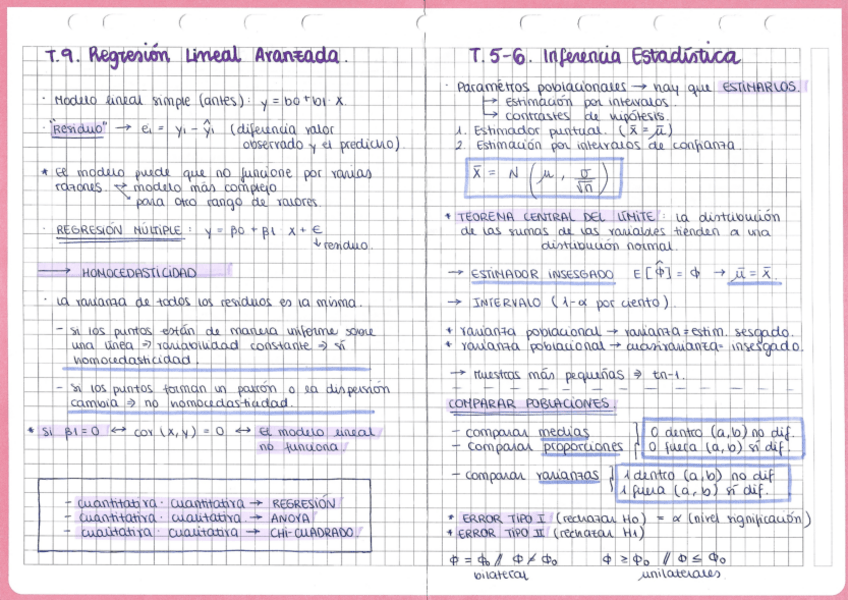 T.9. Regresión Lineal Avanzada.
· Modelo lineal simple (antes): y = b0 + b1 · x.
· "Residuo" → ei = yi - ŷi (diferencia valor
observado y el predicho)
* El modelo puede que no funcione por varias
razones. modelo más complejo
para otro rango de valores.
· REGRESIÓN MÚLTIPLE: y = β0 + β1 · x + ε
↓ residuo.
→ HOMOCEDASTICIDAD
· la varianza de todos los residuos es la misma.
- si los puntos están de manera uniforme sobre
una línea ⇒ variabilidad constante ⇒ sí
homocedasticidad.
- si los puntos forman un patrón o la dispersión
cambia ⇒ no homocedasticidad.
* si β1 = 0 ↔ cov (x,y) = 0 ↔ el modelo lineal
no funciona
- cuantitativa · cuantitativa → REGRESIÓN
- cuantitativa · cualitativa → ANOVA
- cualitativa · cualitativa → CHI-CUADRADO
T.5-6. Inferencia Estadística
· Parámetros poblacionales → hay que ESTIMARLOS.
↳ Estimación por intervalos.
↳ contrastes de hipótesis.
1. Estimador puntual. (x̄ = μ̄)
2. Estimación por intervalos de confianza.
x̄ = N (μ, σ/√n)
* TEOREMA CENTRAL DEL LÍMITE: la distribución
de las sumas de las variables tienden a una
distribución normal.
→ ESTIMADOR INSESGADO E[ϕ̂] = ϕ → μ̄ = x̄.
→ INTERVALO (1-α por ciento).
* varianza poblacional → varianza = estim. sesgado.
* varianza poblacional → cuasivarianza = insesgado.
→ Muestras más pequeñas ⇒ tn-1.
COMPARAR POBLACIONES
- comparar medias } 0 dentro (a,b) no dif.
- comparar proporciones } 0 fuera (a,b) sí dif.
- comparar varianzas } 1 dentro (a,b) no dif
1 fuera (a,b) sí dif.
* ERROR TIPO I (rechazar H0) = α (nivel significación)
* ERROR TIPO II (rechazar H1)
ϕ = ϕ0 // ϕ ≠ ϕ0 ϕ ≥ ϕ0 // ϕ ≤ ϕ0
bilateral unilaterales